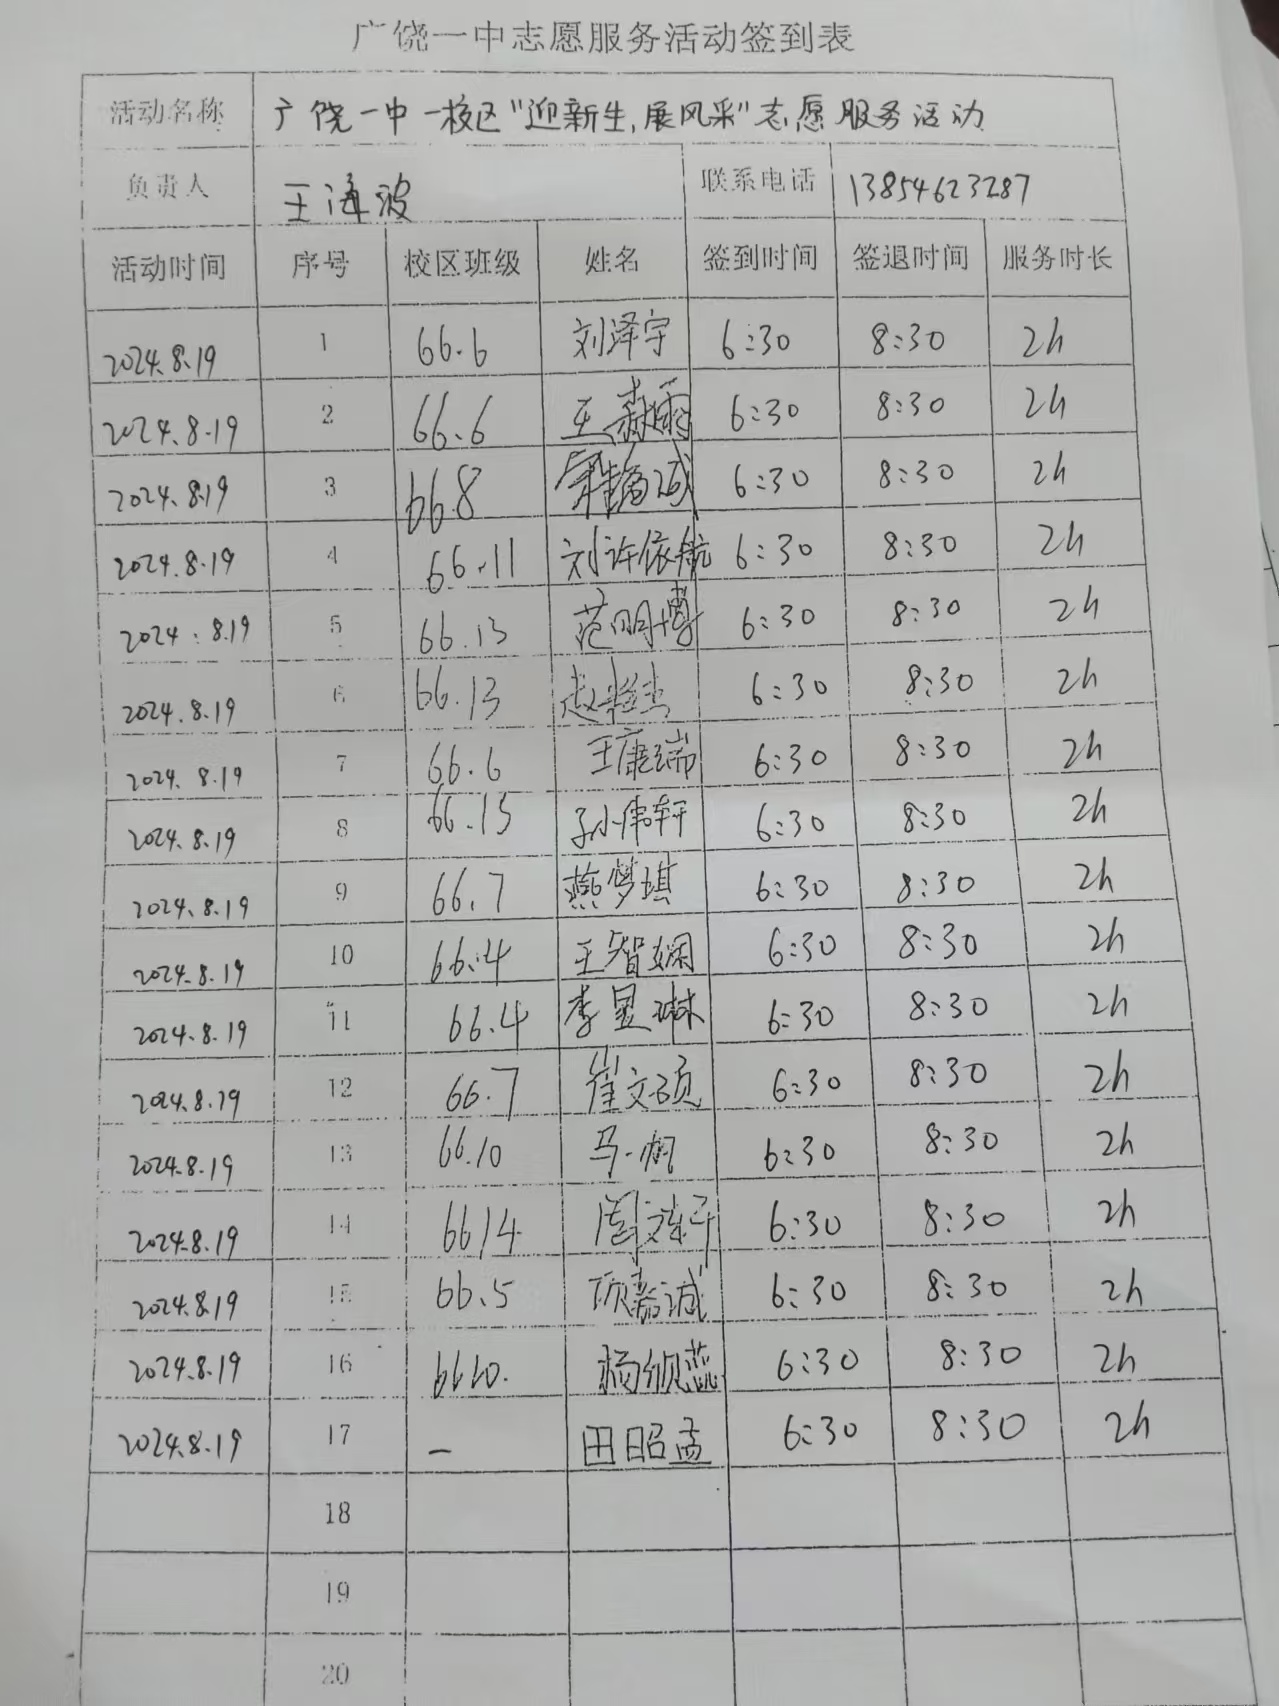 广饶一中志愿服务活动签到表
活动名称 广饶一中一校区"迎新生,展风采"志愿服务活动
负责人 王海波 联系电话 13854623287
活动时间 序号 校区班级 姓名 签到时间 签退时间 服务时长
2024.8.19 1 66.6 刘泽宇 6:30 8:30 2h
2024.8.19 2 66.6 王霖雨 6:30 8:30 2h
2024.8.19 3 66.8 6:30 8:30 2h
2024.8.19 4 66.11 刘许依航 6:30 8:30 2h
2024.8.19 5 66.13 范明博 6:30 8:30 2h
2024.8.19 6 66.13 6:30 8:30 2h
2024.8.19 7 66.6 王康瑞 6:30 8:30 2h
2024.8.19 8 66.13 孙伟轩 6:30 8:30 2h
2024.8.19 9 66.7 燕梦琪 6:30 8:30 2h
2024.8.19 10 66.4 王智娴 6:30 8:30 2h
2024.8.19 11 66.4 李昱琳 6:30 8:30 2h
2024.8.19 12 66.7 崔文硕 6:30 8:30 2h
2024.8.19 13 66.10 马一帆 6:30 8:30 2h
2024.8.19 14 6614 6:30 8:30 2h
2024.8.19 15 66.5 项嘉诚 6:30 8:30 2h
2024.8.19 16 6610. 6:30 8:30 2h
2024.8.19 17 — 田昭孟 6:30 8:30 2h
18
19
20